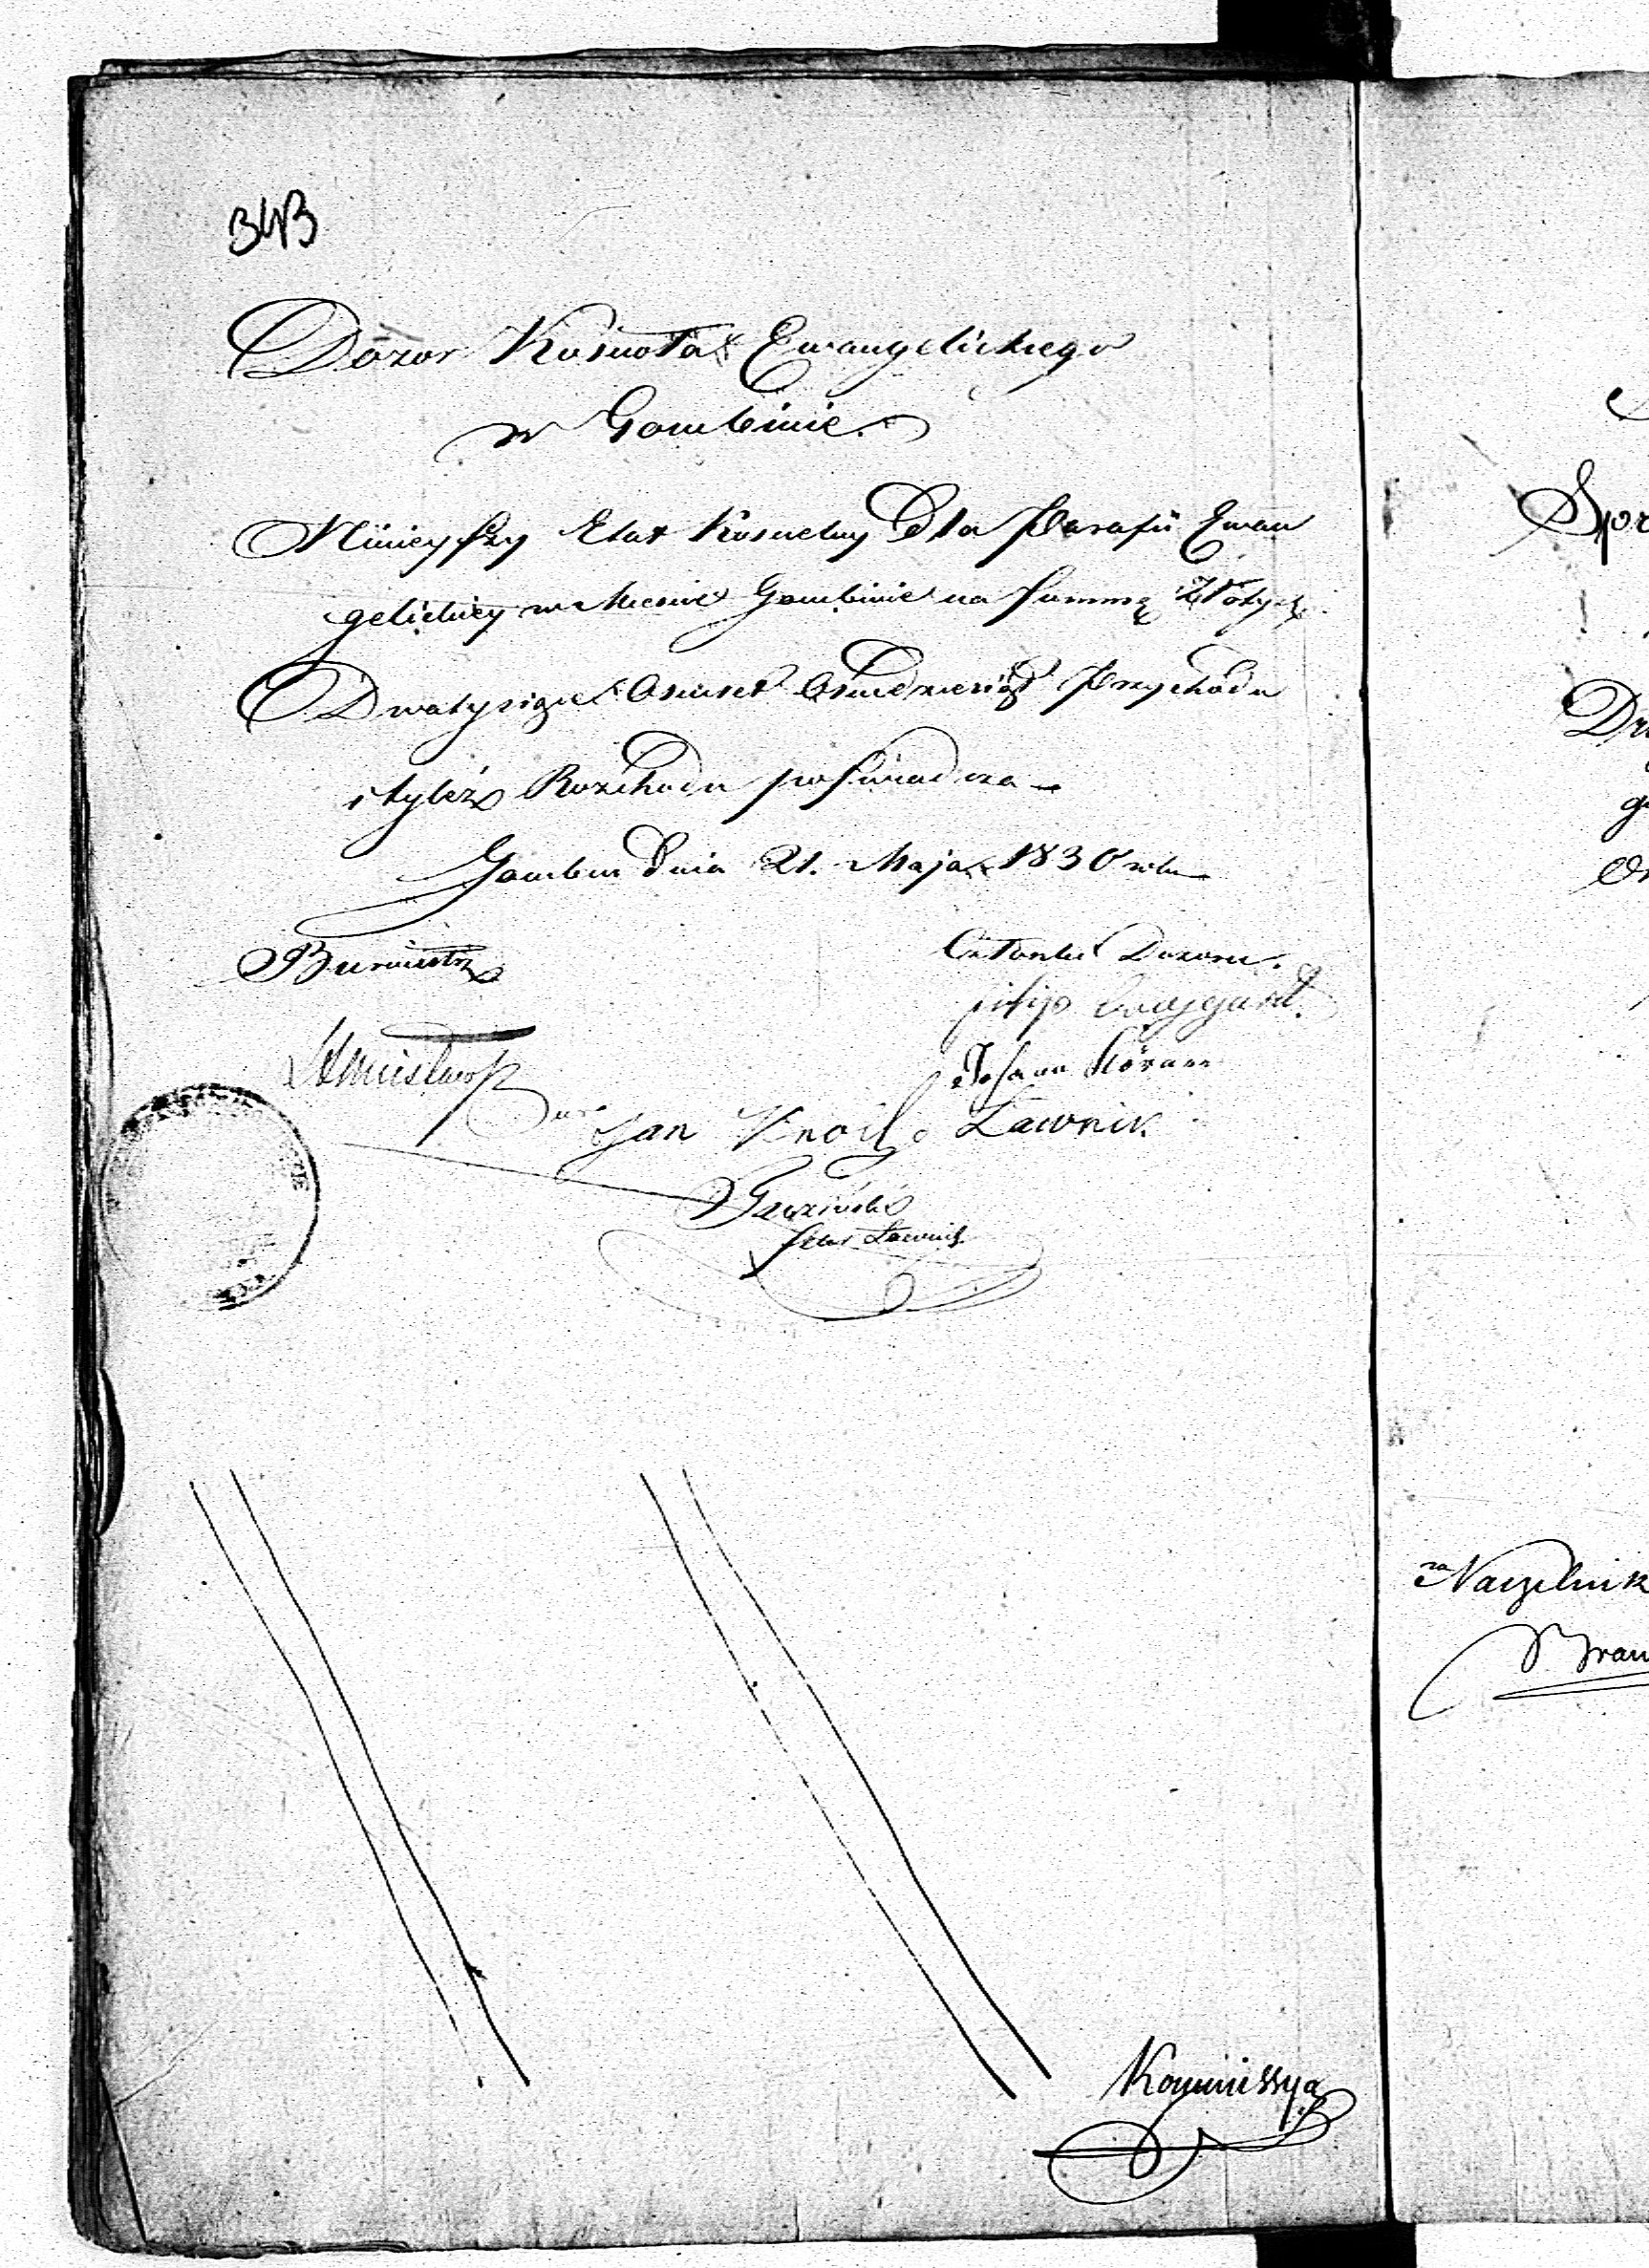 343
Dozor Kościoła Ewangelickiego
w Gombinie.
Ninieyszy Etat Kościelny Dla Parafii Ewan
gelickiey w Mieście Gombinie na summę Złotych
Dwatysiące Osmset Osmdziesiąt Przychodu
i tyleż Rozchodu poświadcza
Gombin Dnia 21. Maja 1830 roku
Burmistrz
Członki Dozoru.
filip
Johann Körner
Jan Knoll Ławnik
Ławnik
Kommissya
Spor
Naczelnik